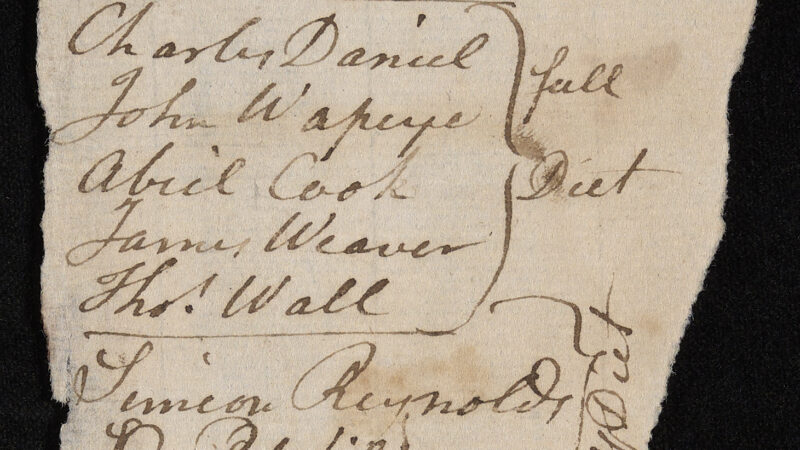 Charles Daniel
John Wapeye
Abiel Cook
James Weaver
Thos. Wall
full
Diet
Simeon Reynolds
Diet